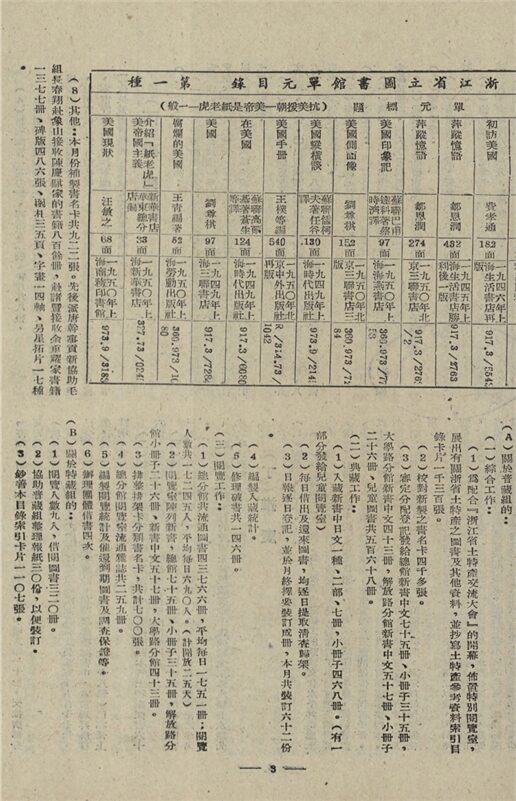 浙江省立圖書館單元目錄　第一種
單元標題（抗美援朝—美帝是紙老虎—一般）
初訪美國　費孝通　182面　海生活書店再版　917.3/5543
萍蹤憶語　鄒恩潤　432面　917.3/2763
萍蹤憶語　鄒恩潤　274面　一九五〇年北京三聯書店
美國印象記　97面　一九五〇年上海海燕書店
美國側面像　劉尊棋　152面　一九五〇年北京三聯書店
美國縱橫談　130面　一九四九年上海時代出版社　973.9/2141
美國手冊　王楳等編　540面
在美國　124面　一九四九年上海時代出版社
美國　劉尊棋　97面　一九四九年上海三聯書店
腐爛的美國　王青編著　52面　一九五〇年上海勞動出版社
介紹「紙老虎」美帝國主義　新華書店華東總分店編　33面　一九五〇年上海新華書店
美國現狀　汪敏之　68面　一九五〇年上海商務印書館　973.9/3182
（8）其他：本月份補製書名卡共九二二張。先後派陸幹事賓新協助毛
組長春翔赴象山接收陳慶麒家的書籍八百餘冊，赴諸暨接收余重耀家書籍
一三七七冊、碑版四八六張、函札三五頁、字畫一四軸、另星拓片一七種
(A)關於普藏組的：
(一)綜合工作：
（1）爲配合『浙江省土特產交流大會』的開幕，佈置特別閱覽室，
展出有關浙省土特產之圖書及其他資料，並抄寫土特產參考資料索引目
錄卡片一千三百張。
（2）校對新製之書名卡四千多張。
（3）審定分配登記發給總館新書中文七十五冊、小冊子三十五冊，
大學路分館新書中文四十三冊，解放路分館新書中文五十七冊、小冊子
二十六冊、兒童圖書共五百六十八冊。
(二)典藏工作：
（1）入藏新書中日文一種、二部、七冊，小冊子四六八冊。（有一
部分發給兒童閱覽室）
（2）每日借出及還來圖書，均逐日提取清查歸架。
（3）日報逐日登記，並於月終擇要裝訂成冊，本月共裝訂六十二份
（4）編製入藏統計。
（5）修理破書共一四六冊。
(三)閱覽工作：
（1）總分館共流通圖書四三七六六冊，平均每日一七五一冊；閱覽
人數共一七二四五人，平均每日六九〇人。（計開放二五天）
（2）閱覽室陳列新書，總館七十五冊、小冊子三十五冊，解放路分
館小冊子二十六冊、新書中文五十七冊，大學路分館四十三冊。
（3）排架卡分類書名卡，共計七〇〇張。
（4）總分館閱覽室流通雜誌共二五九冊。
（5）編製閱覽統計及催還到期圖書及調查保證等。
（6）辦理團體借書四次。
(B)關於特藏組的：
（1）閱覽人數九人，借閱圖書三二〇冊。
（2）協助普藏組整理報紙三〇份，以便裝訂。
（3）鈔善本目錄索引卡片一一〇七張。
— 3 —